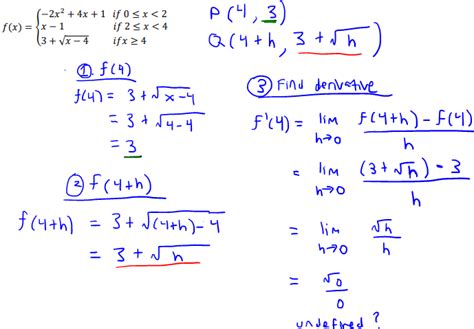 f(x) = { −2x² + 4x + 1 if 0 ≤ x < 2
x − 1 if 2 ≤ x < 4
3 + √(x − 4) if x ≥ 4
P(4, 3)
Q(4+h, 3+√h)
① f(4)
f(4) = 3 + √(x−4)
= 3 + √(4−4)
= 3
② f(4+h)
f(4+h) = 3 + √((4+h)−4)
= 3 + √h
③ Find derivative
f'(4) = lim h→0 (f(4+h) − f(4))/h
= lim h→0 ((3+√h) − 3)/h
= lim h→0 √h/h
= √0/0
undefined?